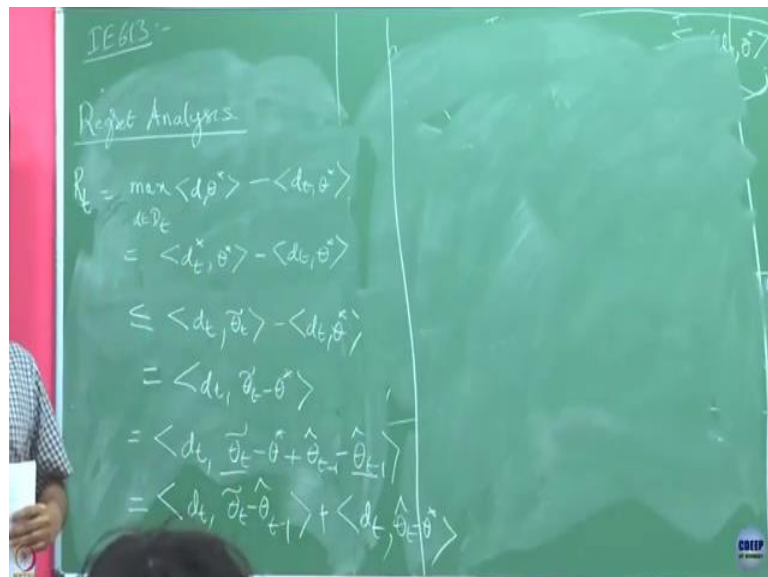 IE613:-
Regret Analysis
R_t = max_{d∈D_t} <d,θ*> - <d_t,θ*>
= <d_t*, θ*> - <d_t,θ*>
≤ <d_t, θ̃_t> - <d_t,θ*>
= <d_t, θ̃_t-θ*>
= <d_t, θ̃_t-θ* + θ̂_{t-1} - θ̂_{t-1}>
= <d_t, θ̃_t-θ̂_{t-1}> + <d_t, θ̂_t-θ*>
<d_t,θ*>
CDEEP
IIT BOMBAY